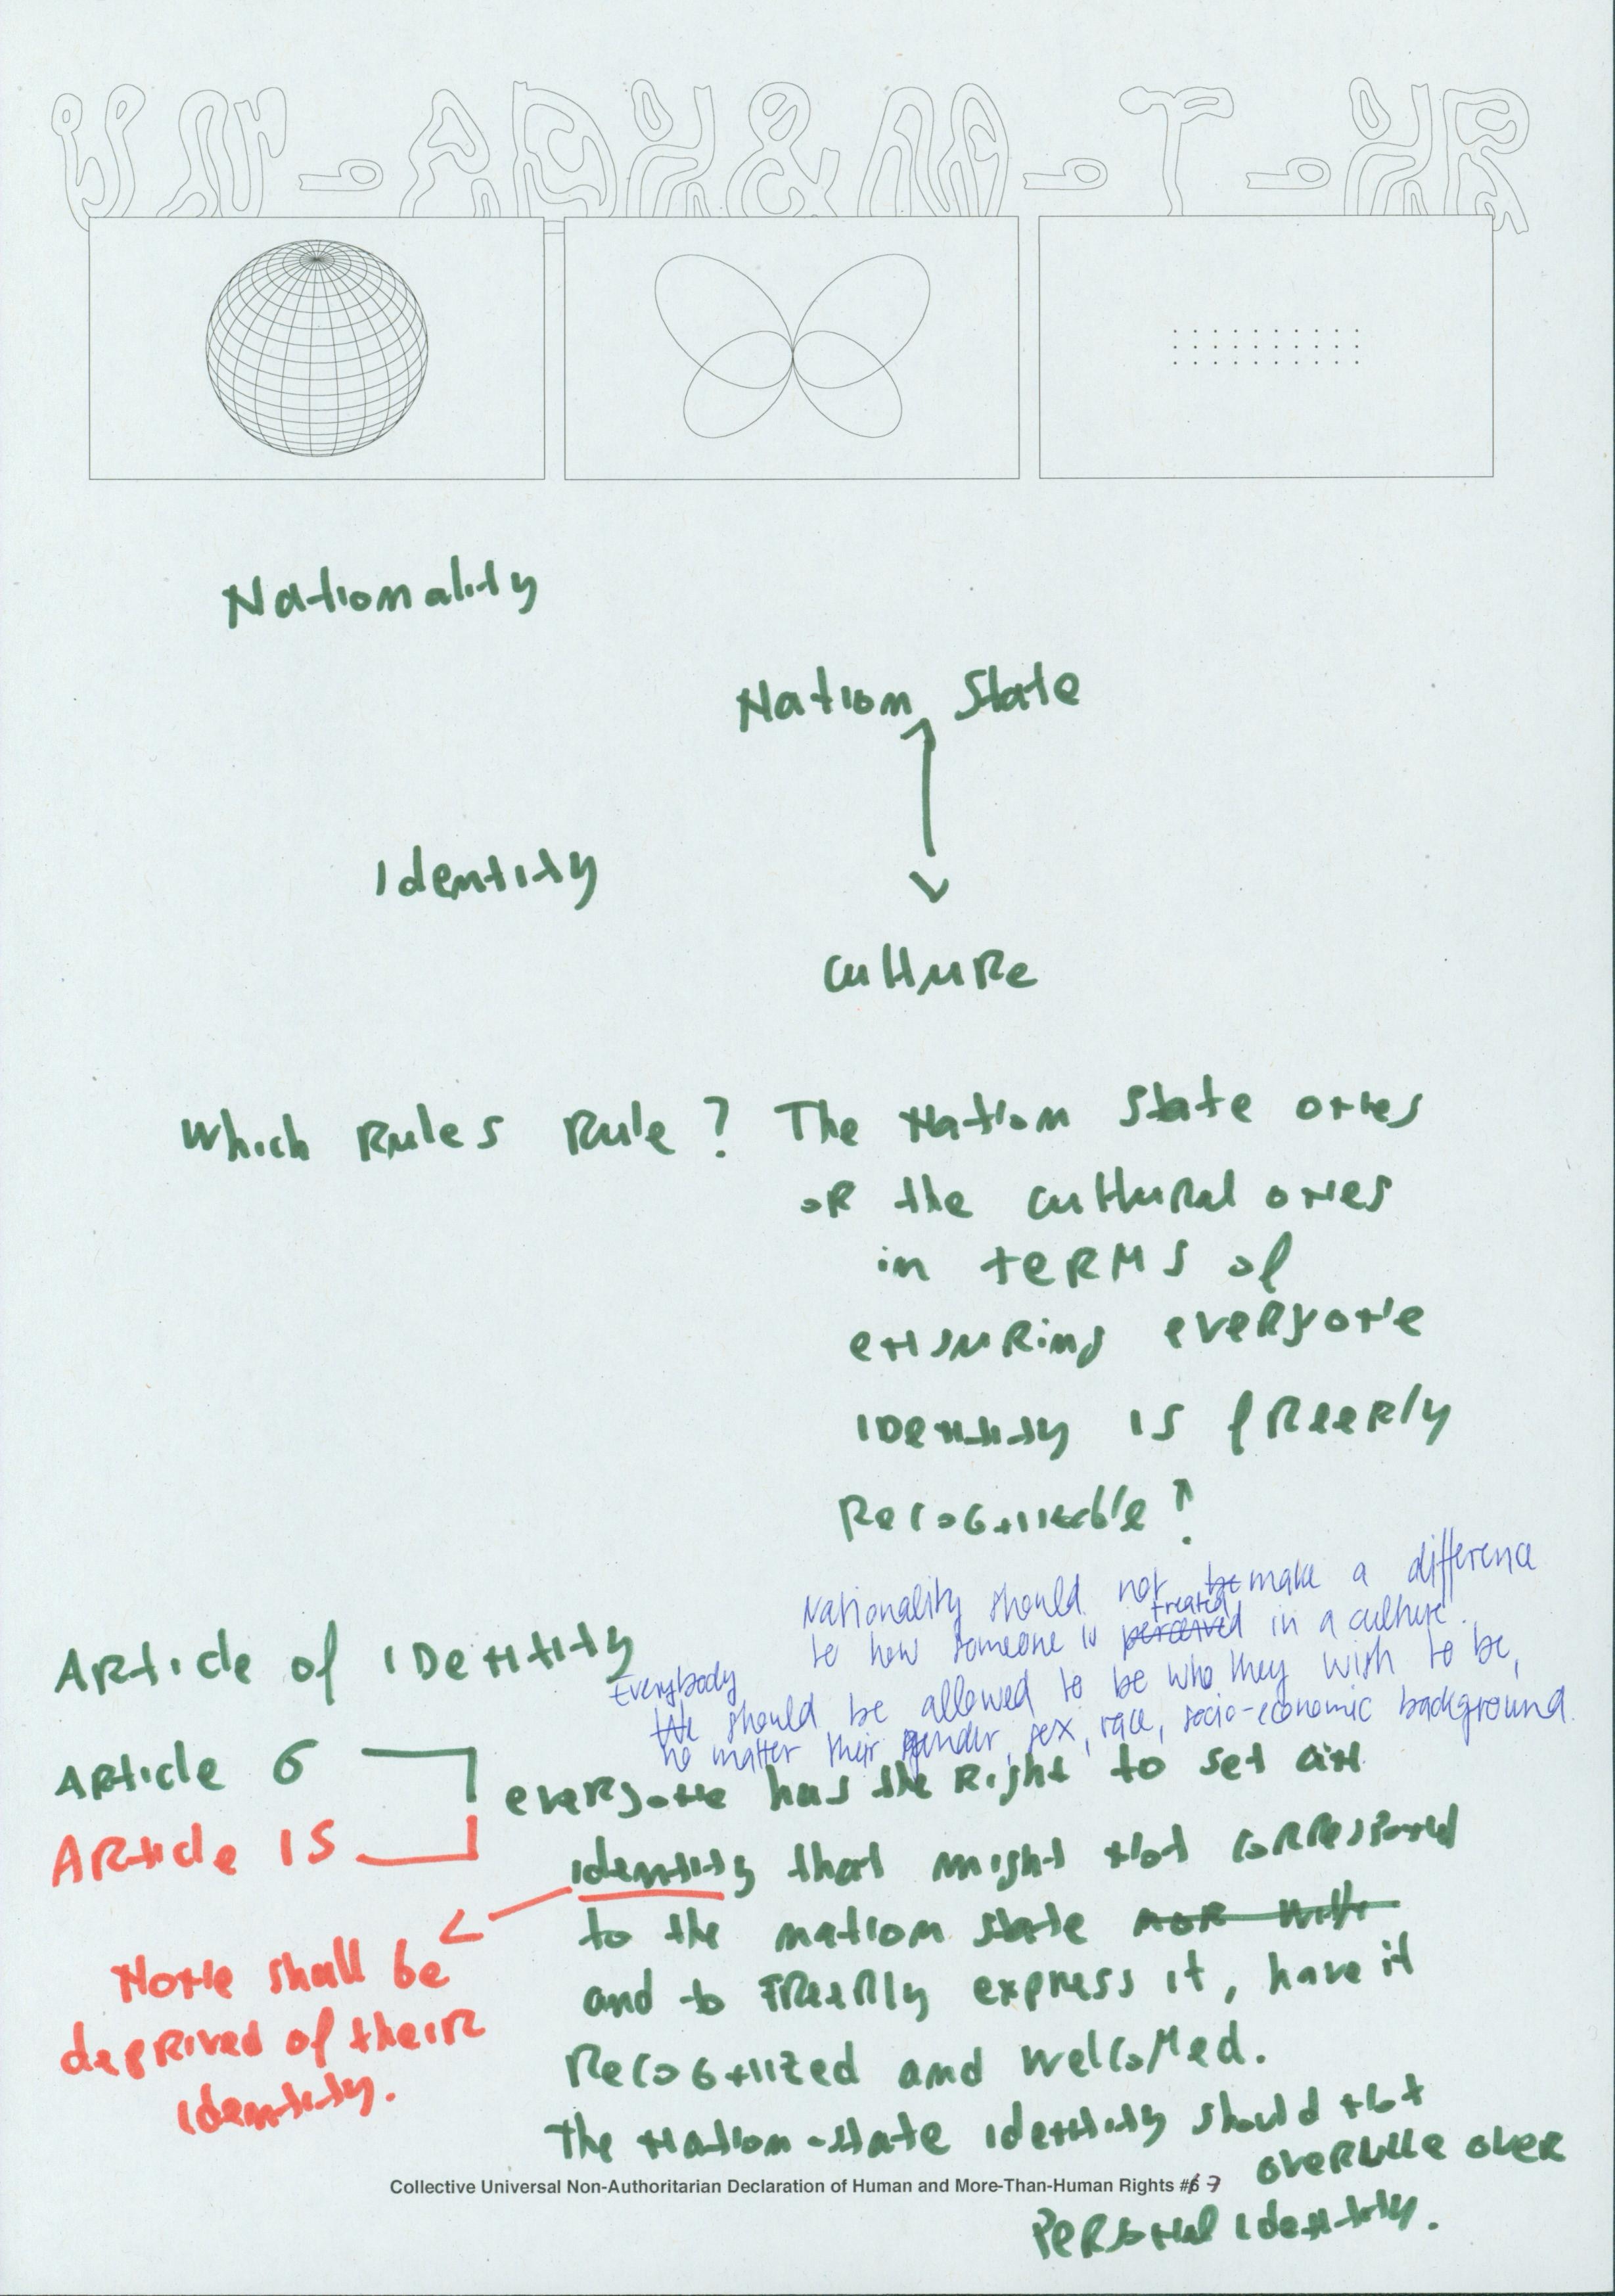 UN-ADH&M-T-HR
Nationality
Nation State
Identity
culture
Which Rules Rule? The Nation State ones
or the cultural ones
in terms of
ensuring everyone
identity is freerly
Recognizable?
Nationality should not be make a difference
treated
to how someone is perceived in a culture.
Everybody
We should be allowed to be who they wish to be,
no matter their gender, sex, race, socio-economic background.
Article of identity
Article 6
Article 15
everyone has the Right to set an
identity that might not correspond
to the nation state nor with
and to freerly express it, have it
Recognized and welcomed.
The nation-state identity should not
overrule over
personal identity.
None shall be
deprived of their
identity.
Collective Universal Non-Authoritarian Declaration of Human and More-Than-Human Rights #6 7